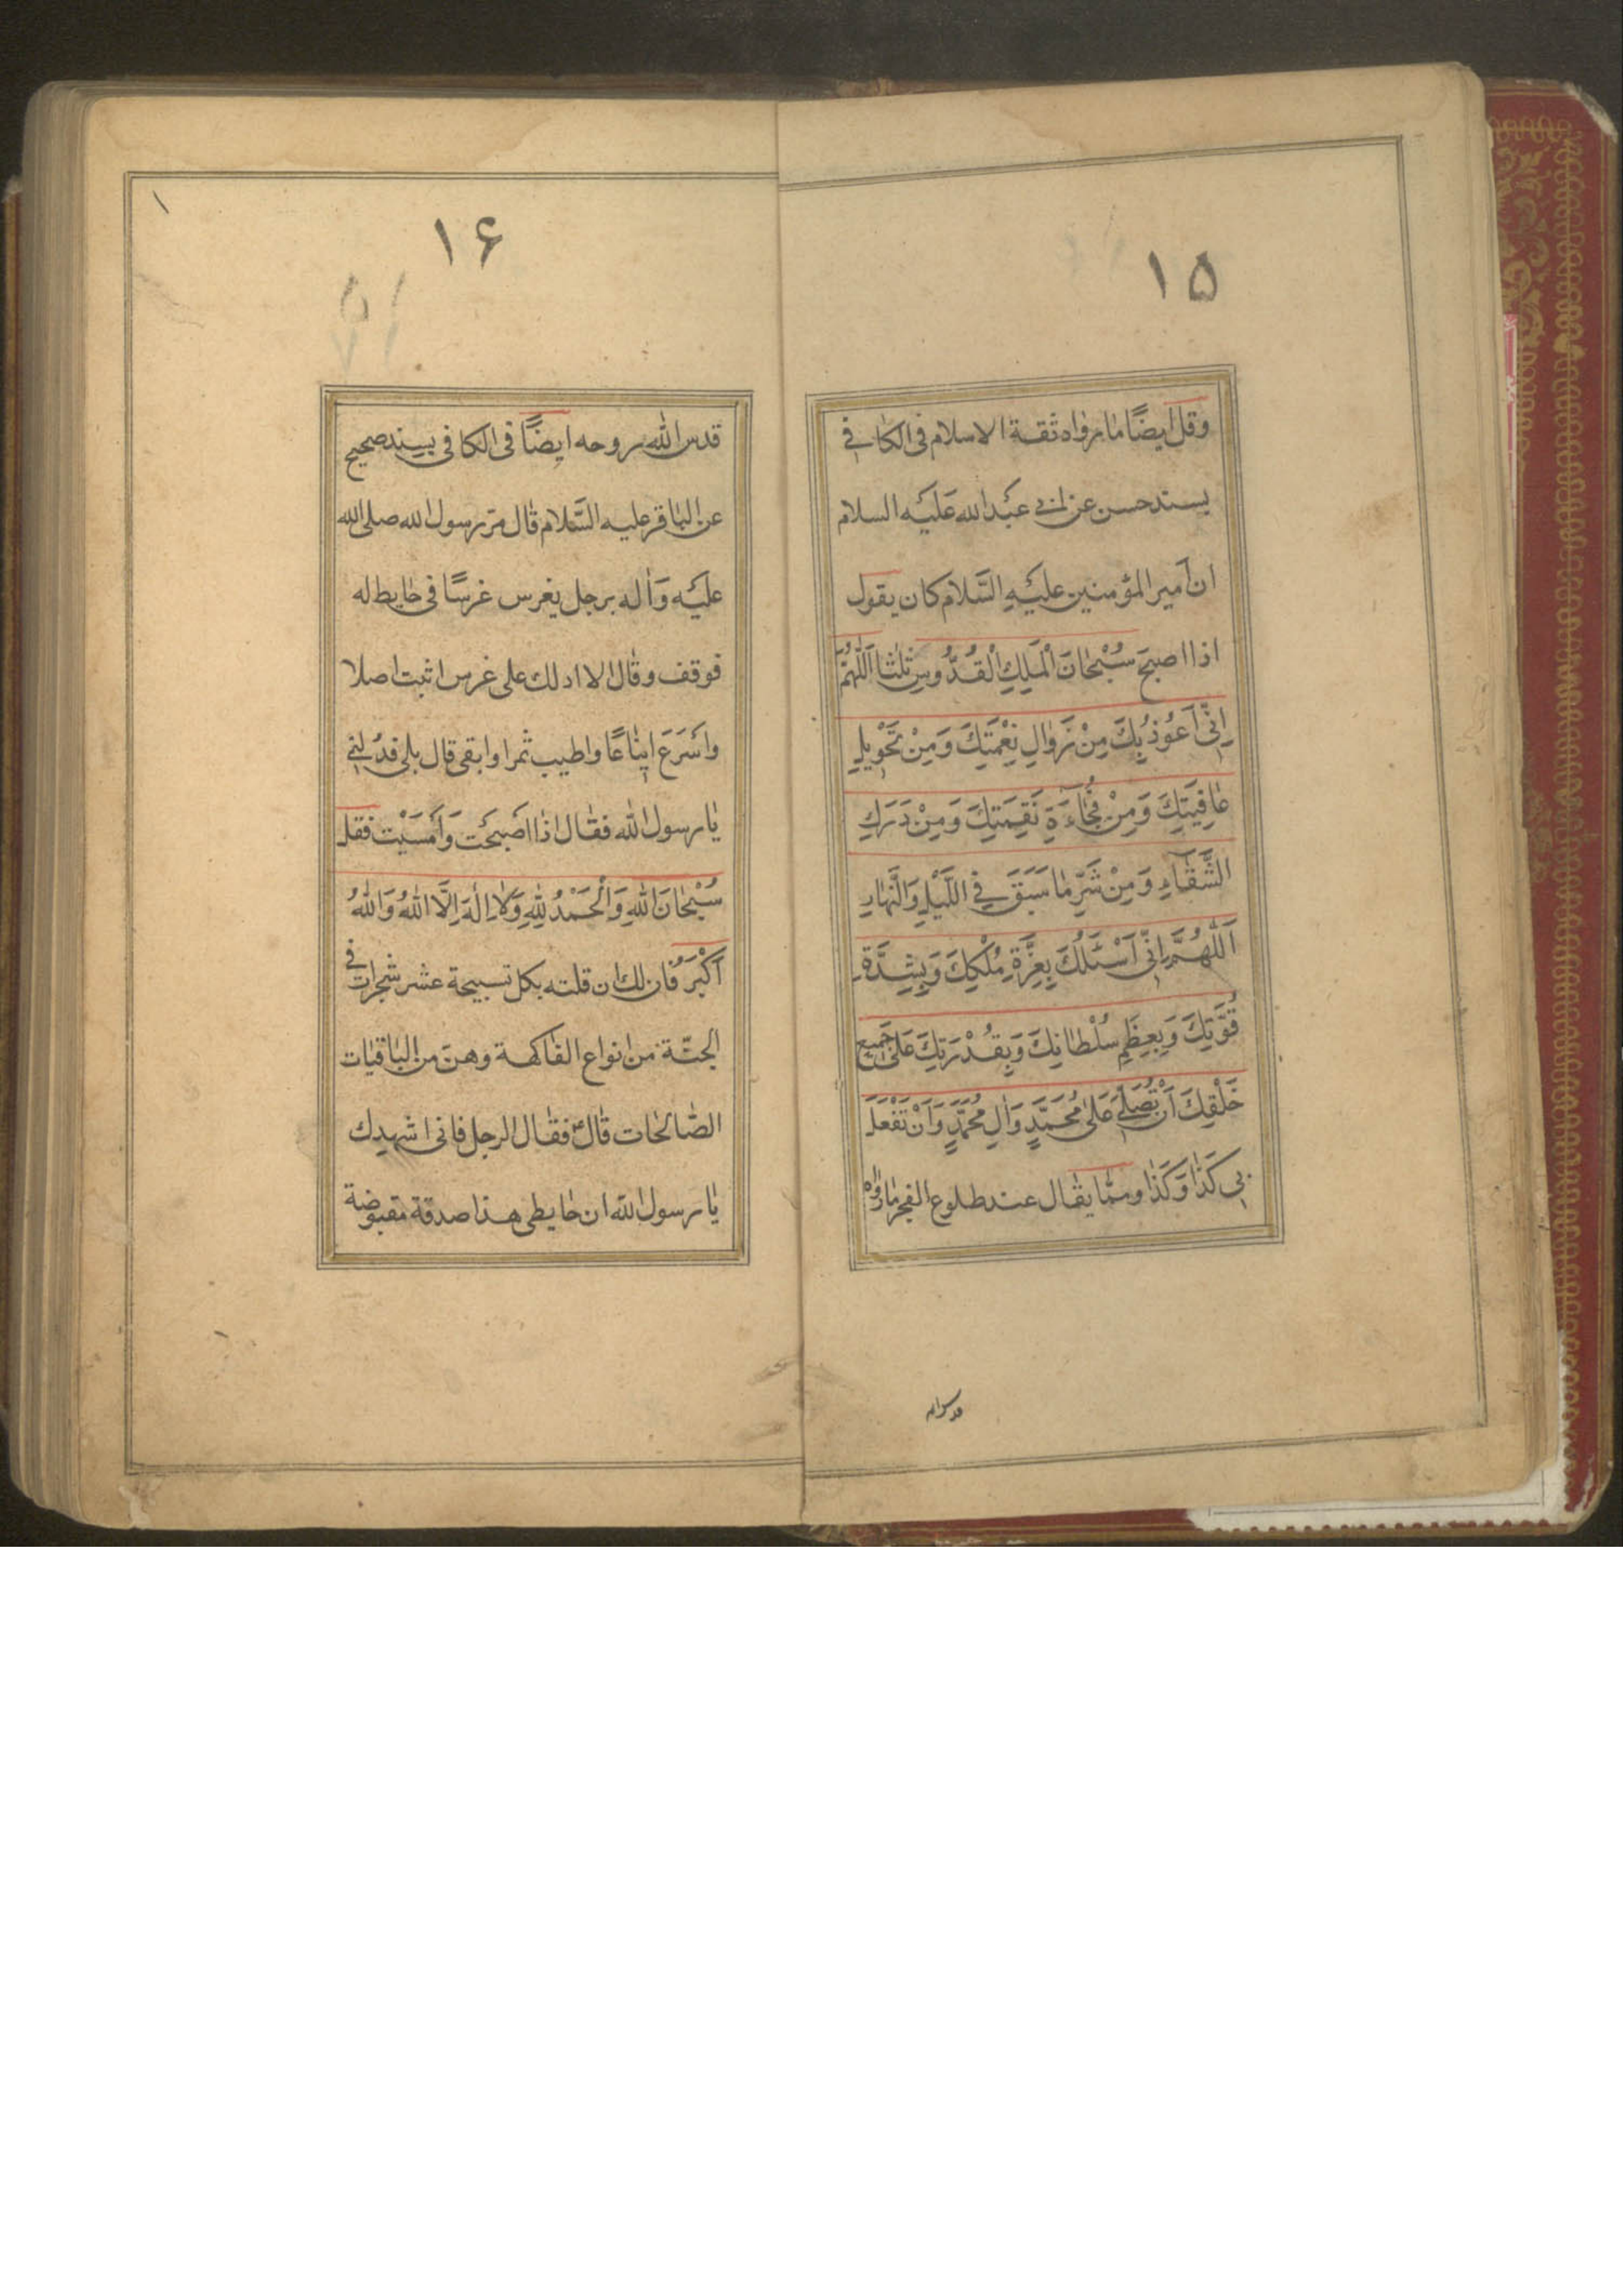 ۱۵
وقل ايضًا ما رواه ثقة الاسلام فى الكافى
بسند حسن عن ابى عبد الله عَليَه السلام
ان اَمير المؤمنين عليَهِ السَّلام كان يقول
اذا اصبحَ سُبْحٰانَ الْمَلِكِ الْقُدُّوسِ ثلٰثا اَللّٰهُمَّ
اِنّى اَعُوذُ بِكَ مِنْ زَوٰالِ نِعْمَتِكَ وَمِنْ تَحْويلِ
عٰافِيَتِكَ وَمِنْ فُجٰاءَةِ نَقِمَتِكَ وَمِنْ دَرَكِ
الشَّقٰاءِ وَمِنْ شَرِّ مٰا سَبَقَ فِى اللَّيْلِ وَالنَّهٰارِ
اَللّٰهُمَّ اِنّى اَسْئَلُكَ بِعِزَّةِ مُلْكِكَ وَبِشِدَّةِ
قُوَّتِكَ وَبِعِظَمِ سُلْطٰانِكَ وَبِقُدْرَتِكَ عَلىٰ جَميعِ
خَلْقِكَ اَنْ تُصَلِّىَ عَلىٰ مُحَمَّدٍ وَاٰلِ مُحَمَّدٍ وَاَنْ تَفْعَلَ
بى كَذٰا وَكَذٰا ومما يقٰال عند طلوع الفجر مٰا رَوٰاه
قدس الله
۱۶
قدس الله روحه ايضًا فى الكافى بسند صحيح
عن البٰاقر عليه السَّلام قٰال مرّ رسول الله صلى الله
عليَه وَاٰله برجل يغرس غرسًا فى حٰايط له
فوقف وقٰال الا ادلك على غرس اثبت اصلا
واَسْرَعَ ايناعًا واطيب ثمرا وابقى قال بلى فدُلنى
يٰا رسول الله فقٰال اذٰا اصَبحَت وَاَمسَيْت فقل
سُبْحٰانَ اللهِ وَالْحَمْدُ لِلّٰهِ وَلاٰ اِلٰهَ اِلَّا اللهُ وَاللهُ
اَكْبَرُ فٰان لك ان قلته بكل تسبيحة عشر شجرات فى
الجنّة من انواع الفٰاكهة وهنّ من البٰاقيٰات
الصّٰالحٰات قٰال فقٰال الرجل فانى اشهدك
يٰا رسول الله ان حٰايطى هذا صدقة مقبوضة